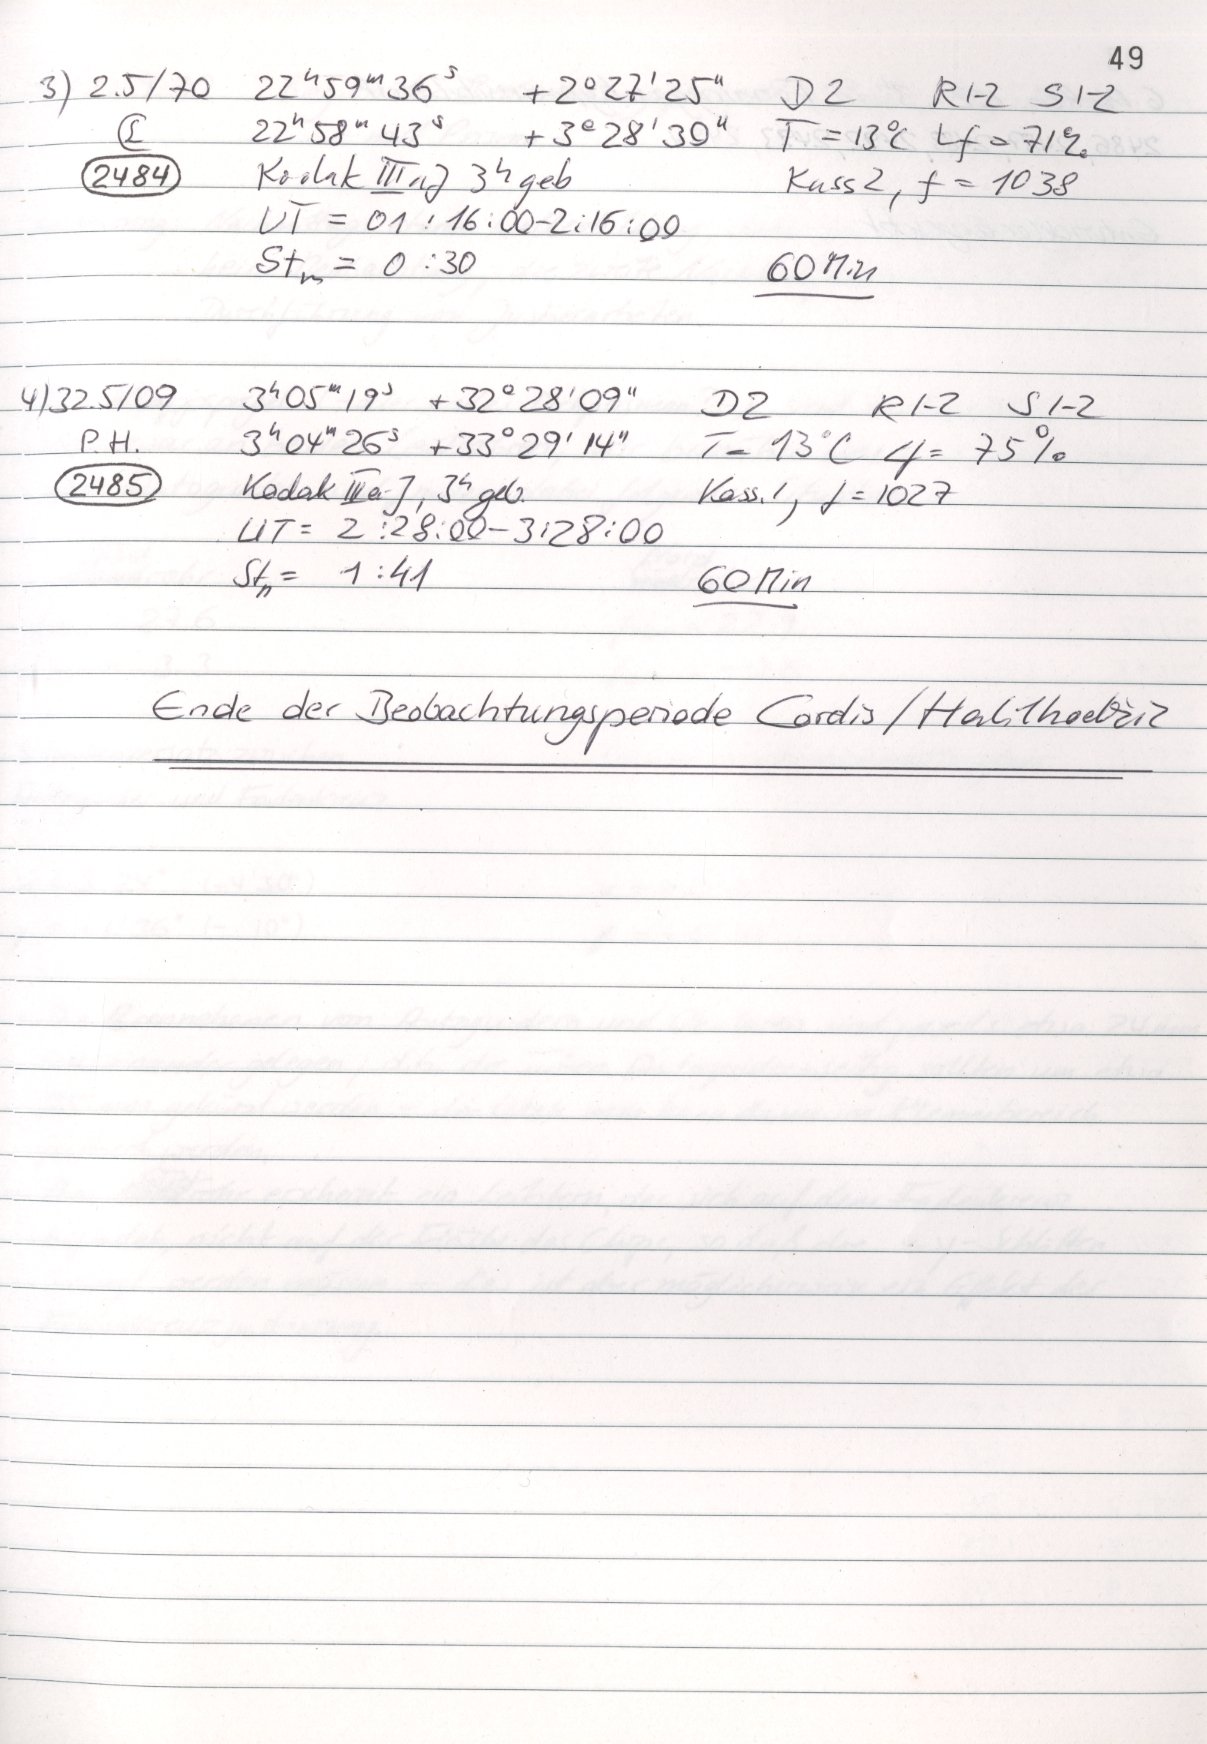 49
3) 2.5/70 22ʰ59ᵐ36ˢ +2°27'25" D2 R1-2 S1-2
22ʰ58ᵐ43ˢ +3°28'30" T=13°C Lf=71%
2484 Kodak IIIaJ 3ʰ geb Kass2, f=1038
UT = 01:16:00-2:16:00
Stm = 0:30 60 Min
4) 32.5/09 3ʰ05ᵐ19ˢ +32°28'09" D2 R1-2 S1-2
P.H. 3ʰ04ᵐ26ˢ +33°29'14" T=13°C Lf= 75%
2485 Kodak IIIa-J, 3ʰ geb. Kass.1, f=1027
UT= 2:28:00-3:28:00
Stm= 1:41 60 Min
Ende der Beobachtungsperiode Cordis/